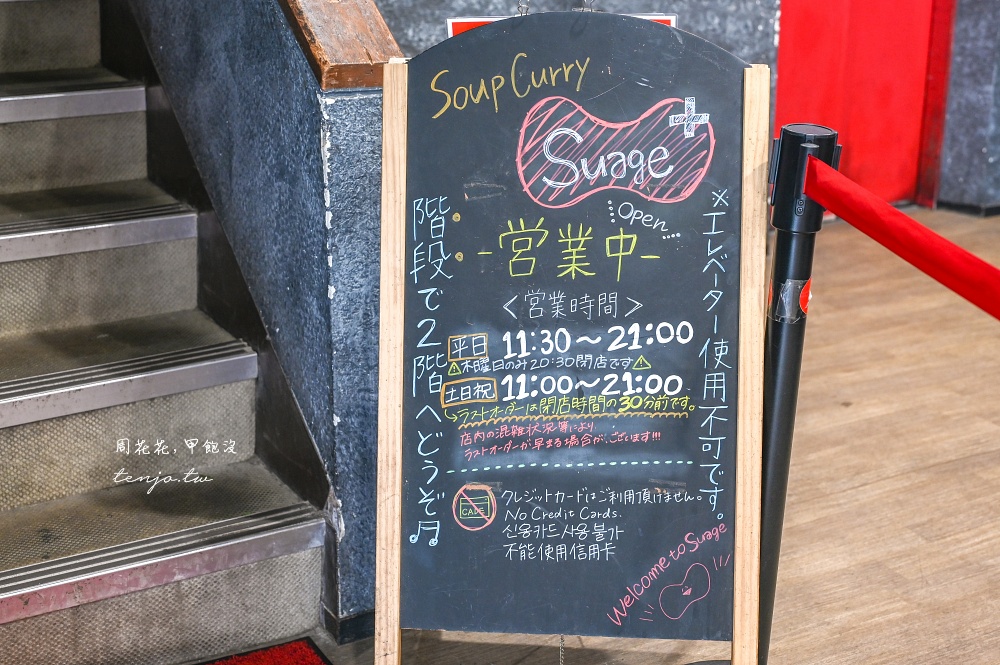 Soup Curry
Suage
Open
-営業中-
<営業時間>
平日 11:30〜21:00
木曜日のみ20:30閉店です
土日祝 11:00〜21:00
ラストオーダーは閉店時間の30分前です。
店内の混雑状況等により
ラストオーダーが早まる場合がございます!!!
CARD
クレジットカードはご利用頂けません。
No Credit Cards.
신용카드 사용 불가
不能使用信用卡
Welcome to Suage
階段で2階へどうぞ♬
※エレベーター使用不可です。
周花花,甲飽沒
tenjo.tw